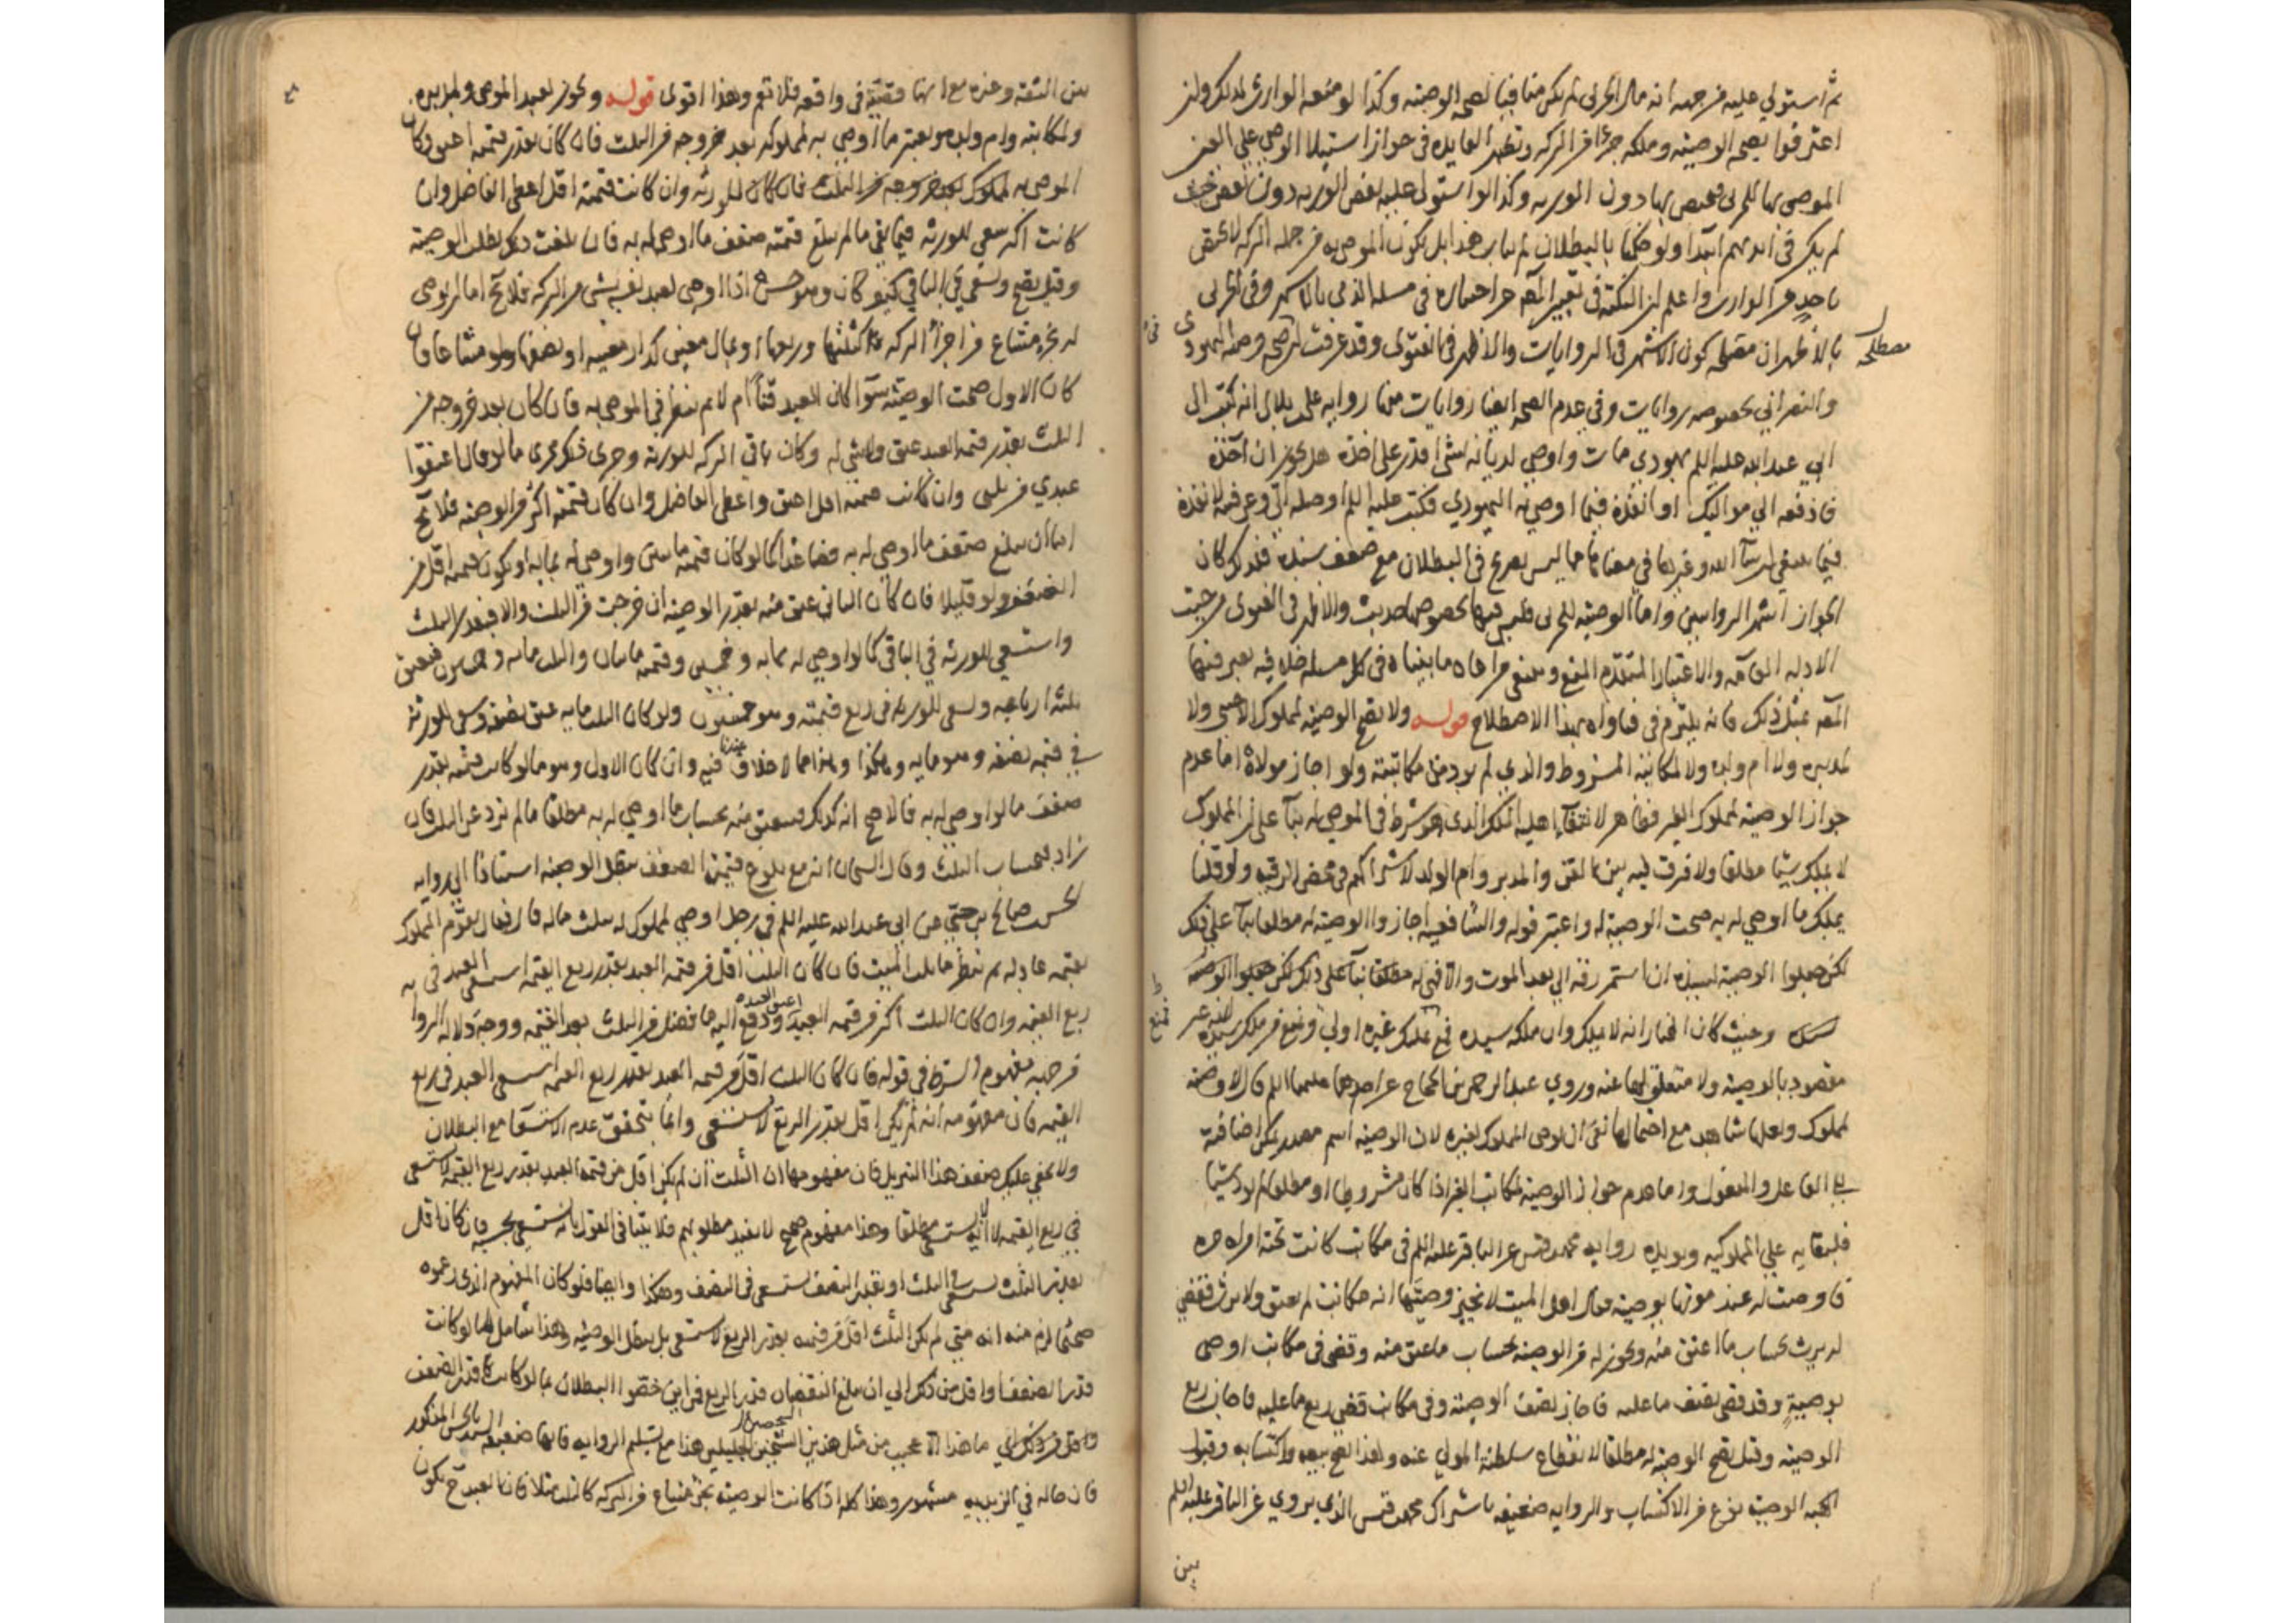 ثم استولي عليه من جهة انه مال الحربي لم يكن منافيا لصحة الوصية وكذا لو منعه الوارث لذلك وان
اعترفوا بصحة الوصية وملكه جزءا من التركة وتظهر الفايدة في جواز استيلا الوصي علي العين
الموصي بها للحربي فيختص بها دون الورثة وكذا لو استولي عليه بعض الورثة دون بعض حيث
لم يكن في ايديهم ابتدا ولو حكمنا بالبطلان لم يتأت هذا بل يكون الموصي به من جملة التركة لا يختص
باحد من الوارث واعلم ان النكتة في تعبير المصنف عن اختياره في مسئلة الذمي بالاشهر وفي الحربي
بالاظهر ان مصطلحه كون الاشهر في الروايات والاظهر في الفتوى وقد عرفت ان صحة وصية اليهودي
مصطلحه
والنصراني بخصوصه روايات وفي عدم الصحة ايضا روايات منها رواية علي بن بلال انه كتب الى
ابي عبد الله عليه السلم يهودي مات واوصي لديانه بشئ اقدر على اخذه هل يجوز ان آخذه
فادفعه الي مواليك او انفذه فيما اوصي به اليهودي فكتب عليه السلم اوصله الي وعرفنيه لانفذه
فيما ينبغي ان شآ الله وغيرها في معناها مما ليس بصريح في البطلان مع ضعف سنده فلذلك كان
الجواز اشهر الروايتين واما الوصية للحربي فليس فيها بخصوصها حديث والاظهر في الفتوى من حيث
الادلة العامة والاعتبار المتقدم المنع وينبغي مراعاة ما بيناه في كل مسئلة خلافية يعبر فيها
المصنف بمثل ذلك فانه يلتزم في فتاواه بهذا الاصطلاح قوله ولا تصح الوصية لمملوك الاجنبي ولا
لمدبره ولا ام ولده ولا لمكاتبه المشروط والذي لم يود من مكاتبته ولو اجاز مولاه اما عدم
جواز الوصية لمملوك الغير فظاهر لانتفآ اهلية الملك الذي هو شرط في الموصي له بنآ على ان المملوك
لا يملك شيئا مطلقا ولا فرق فيه بين القن والمدبر وام الولد لاشتراكهم في محض الرقية ولو قلنا
يملك ما اوصي له به صحت الوصية له واعتبر قوله والشافعية اجازوا الوصية له مطلقا بنآ علي ذلك
لكن جعلوا الوصية لسيده ان استمر رقه الي بعد الموت والا فهي له
وحيث كان المختار انه لا يملك وان ملكه سيده فمع تملك غيره اولي
مقصود بالوصية ولا متعلق لها عنه وروي عبد الرحمن بن الحجاج عن احدهما عليهما السلم قال لا وصية
لمملوك ولعلها شاهد مع احتمالها نفي ان يوصي المملوك لغيره لان الوصية اسم مصدر يمكن اضافته
الي الفاعل والمفعول واما عدم جواز الوصية لمكاتب الغير اذا كان مشروطا او مطلقا لم يود شيئا
فلبقايه علي المملوكية ويويده رواية محمد بن قيس عن الباقر عليه السلم في مكاتب كانت تحته امراه حره
فاوصت له عند موتها بوصية فقال اهل الميت لا نجيز وصيتها انه مكاتب لم يعتق ولا يرث فقضي
انه يرث بحساب ما اعتق منه ويجوز له من الوصية بحساب ما عتق منه وقضي في مكاتب اوصى
بوصية وقد قضى نصف ما عليه فاجاز نصف الوصية وفي مكاتب قضي ربع ما عليه فاجاز ربع
الوصية وقيل تصح الوصية له مطلقا لانقطاع سلطنة المولي عنه ولهذا يصح بيعه واكتسابه وقبول
الهبة الوصية نوع من الاكتساب والرواية ضعيفة باشتراك محمد بن قيس الذي يروي عن الباقر عليه السلم
بين
بين الثقة وغيره مع انها قضية في واقعة فلا تعم وهذا اقوى قوله ويجوز لعبد الموصي ولمدبره
ولمكاتبه وام ولده ويعتبر ما اوصي به لمملوكه بعد خروجه من الثلث فان كان بقدر قيمته اعتق وكان
الموصي به للورثة وان كانت قيمته اقل اعطي الفاضل وان
كانت اكثر سعي للورثة فيما بقي ما لم تبلغ قيمته ضعف ما اوصي له به فان بلغت ذلك بطلت الوصية
وقيل تصح ويسعي في الباقي كيف كان وهو حسن اذا اوصي لعبد نفسه بشئ من التركة فلا يخ اما ان يوصي
له بجزء مشاع من اجزآ التركة كثلثها وربعها او بمال معين كدار معينة او نصفها ولو مشاعا فان
كان الاول صحت الوصية سوآ كان العبد قنا ام لا ثم ينظر في الموصي به فان كان بعد خروجه من
الثلث بقدر قيمة العبد عتق ولا شئ له وكان باقي التركة للورثة وجرى ذلك مجرى ما لو قال اعتقوا
عبدي من ثلثي وان كانت قيمته اقل اعتق واعطي الفاضل وان كان قيمته اكثر من الوصية فلا يخ
اما ان يبلغ ضعف ما اوصي له به فصاعدا كما لو كان قيمته مايتين واوصي له بمايه او يكون قيمته اقل من
الضعف ولو قليلا فان كان الثاني عتق منه بقدر الوصية ان خرجت من الثلث والا فبقدر الثلث
واستسعي للورثة في الباقي كما لو اوصي له بمايه وخمسين وقيمته مايتان والثلث مايه وخمسون فيعتق
ثلثة ارباعه ويسعى للورثة في ربع قيمته وهو خمسون ولو كان الثلث مايه عتق نصفه وسعى للورثة
في قيمة نصفه وهو مايه وهكذا وهذا مما لا خلاف عندنا فيه وان كان الاول وهو ما لو كانت قيمته بقدر
ضعف ما لو اوصي له به فالاصح انه كذلك فيعتق منه بحساب ما اوصي له به مطلقا ما لم يزد عن الثلث فان
زاد فبحساب الثلث وقال الشيخان انه مع بلوغ قيمته الضعف تبطل الوصية استنادا الي رواية
الحسن بن صالح بن حي عن ابي عبد الله عليه السلم في رجل اوصي لمملوك له بثلث ماله قال فقال يقوم المملوك
بقيمة عادلة ثم ينظر ما ثلث الميت فان كان الثلث اقل من قيمة العبد بقدر ربع القيمة استسعي العبد في
ربع القيمة وان كان الثلث اكثر من قيمة العبد اعتق العبد ودفع اليه ما فضل من الثلث بعد القيمة ووجه دلالة الروا
من جهة مفهوم الشرط في قوله فان كان الثلث اقل من قيمة العبد بقدر ربع القيمة استسعي العبد في ربع
القيمة فان مفهومه انه لم يكن اقل بقدر الربع لا يستسعي وانما يتحقق عدم الاستسعآ مع البطلان
ولا يخفي عليك ضعف هذا التنزيل فان مفهومها ان الثلث ان لم يكن اقل من قيمة العبد بقدر ربع القيمة لا يستسعي
في ربع القيمة لا انه لا يستسعي مطلقا وهذا مفهوم صحيح لا يفيد مطلوبهم فلا ينافي القول بانه يستسعي بحسبه فان كان اقل
بقدر الثلث يستسعي في الثلث او بقدر النصف يستسعي في النصف وهكذا وايضا فلو كان المفهوم الذي زعموه
صحيحا لزم منه انه متى لم يكن الثلث اقل من قيمته بقدر الربع لا يستسعي بل تبطل الوصية وهذا شامل لما لو كانت
قدر الضعف او اقل من ذلك الي ان يبلغ النقصان قدر الربع فمن اين خصوا البطلان بما لو كانت قدر الضعف
ما هذا الا عجيب من مثل هذين الشيخين الجليلين هذا مع تسليم الرواية فانها ضعيفة السند بالحسن المذكور
فان حاله في الزيدية مشهور وهذا كله اذا كانت الوصية بجزء مشاع من التركة كالثلث مثلا فان العبد ح يكون